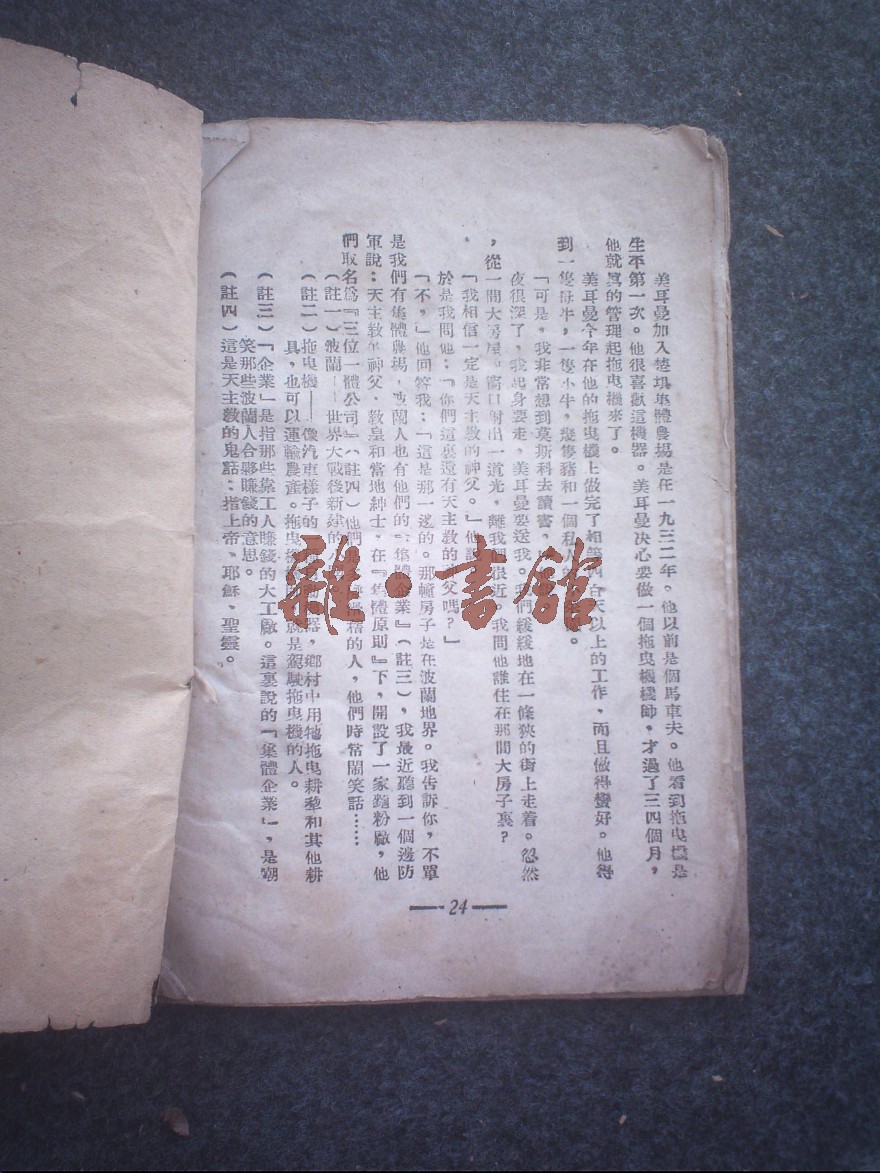 美耳曼加入楚垻集體農場是在一九三二年。他以前是個馬車夫。他看到拖曳機是
生平第一次。他很喜歡這機器。美耳曼決心要做一個拖曳機機師，才過了三四個月，
他就眞的管理起拖曳機來了。
美耳曼今年在他的拖曳機上做完了相等四百天以上的工作，而且做得蠻好。他得
到一隻母牛，一隻小牛，幾隻豬和一個私人的
「可是，我非常想到莫斯科去讀書，
夜很深了，我起身要走，美耳曼要送我。我們緩緩地在一條狹的街上走着。忽然
，從一間大房屋的窗口射出一道光，離我們很近。我問他誰住在那間大房子裏？
「我相信一定是天主教的神父。」他
於是我問他：「你們這裏還有天主教的神父嗎？」
「不，」他回答我：「這是那一邊的。那幢房子是在波蘭地界。我告訴你，不單
是我們有集體農場，波蘭人也有他們的『集體企業』（註三），我最近聽到一個邊防
軍說：天主教的神父、教皇和當地紳士，在『集體原則』下，開設了一家麵粉廠，他
們取名爲『三位一體公司』（註四）他們 的人，他們時常鬧笑話……
（註一）波蘭——世界大戰後新建的
（註二）拖曳機——像汽車樣子的 器，鄉村中用牠拖曳耕犂和其他耕
具，也可以運輸農產。拖曳機 就是駕駛拖曳機的人。
（註三）「企業」是指那些靠工人賺錢的大工廠。這裏說的「集體企業」，是嘲
笑那些波蘭人合夥賺錢的意思。
（註四）這是天主教的鬼話：指上帝、耶穌、聖靈。
24
雜·書館